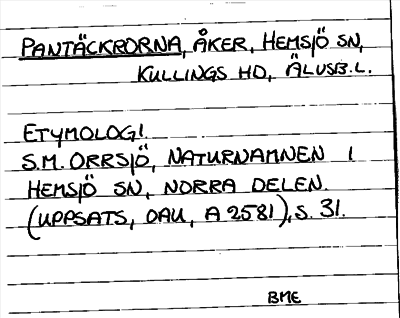 PANTÄCKRORNA, ÅKER, HEMSJÖ SN,
KULLINGS HD, ÄLVSB. L.
ETYMOLOGI
S.M. ORRSJÖ, NATURNAMNEN I
HEMSJÖ SN, NORRA DELEN.
(UPPSATS, OAU, A 2581), S. 31.
BME